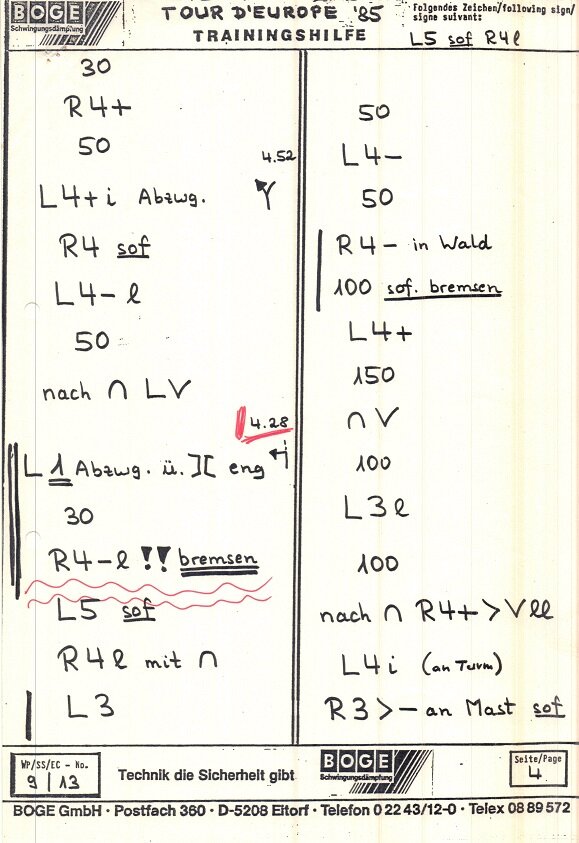 BOGE
Schwingungsdämpfung
TOUR D'EUROPE '85
TRAININGSHILFE
Folgendes Zeichen/following sign/
signe suivant:
L5 sof R4l
30
R4+
50
4.52
L4+ i Abzwg.
R4 sof
L4-l
50
nach ∩ LV
4.28
L1 Abzwg. ü. ][ eng
30
R4-l !! bremsen
L5 sof
R4l mit ∩
L3
50
L4-
50
R4- in Wald
100 sof. bremsen
L4+
150
∩ V
100
L3l
100
nach ∩ R4+ > V ll
L4i (an Turm)
R3 >- an Mast sof
WP/SS/EC - No.
9 | 13
Technik die Sicherheit gibt
BOGE
Schwingungsdämpfung
Seite/Page
4
BOGE GmbH · Postfach 360 · D-5208 Eitorf · Telefon 0 22 43/12-0 · Telex 08 89 572